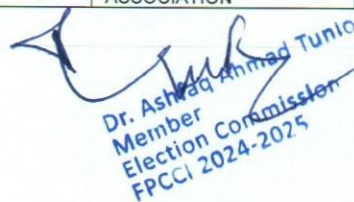 ASSOCIATION
Dr. Ashfaq Ahmad Tunio
Member
Election Commission
FPCCI 2024-2025